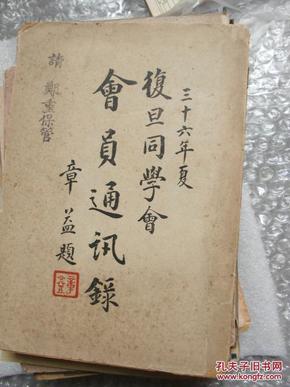 三十六年夏
復旦同學會
會員通訊錄
章益題
請鄭重保管
孔夫子旧书网